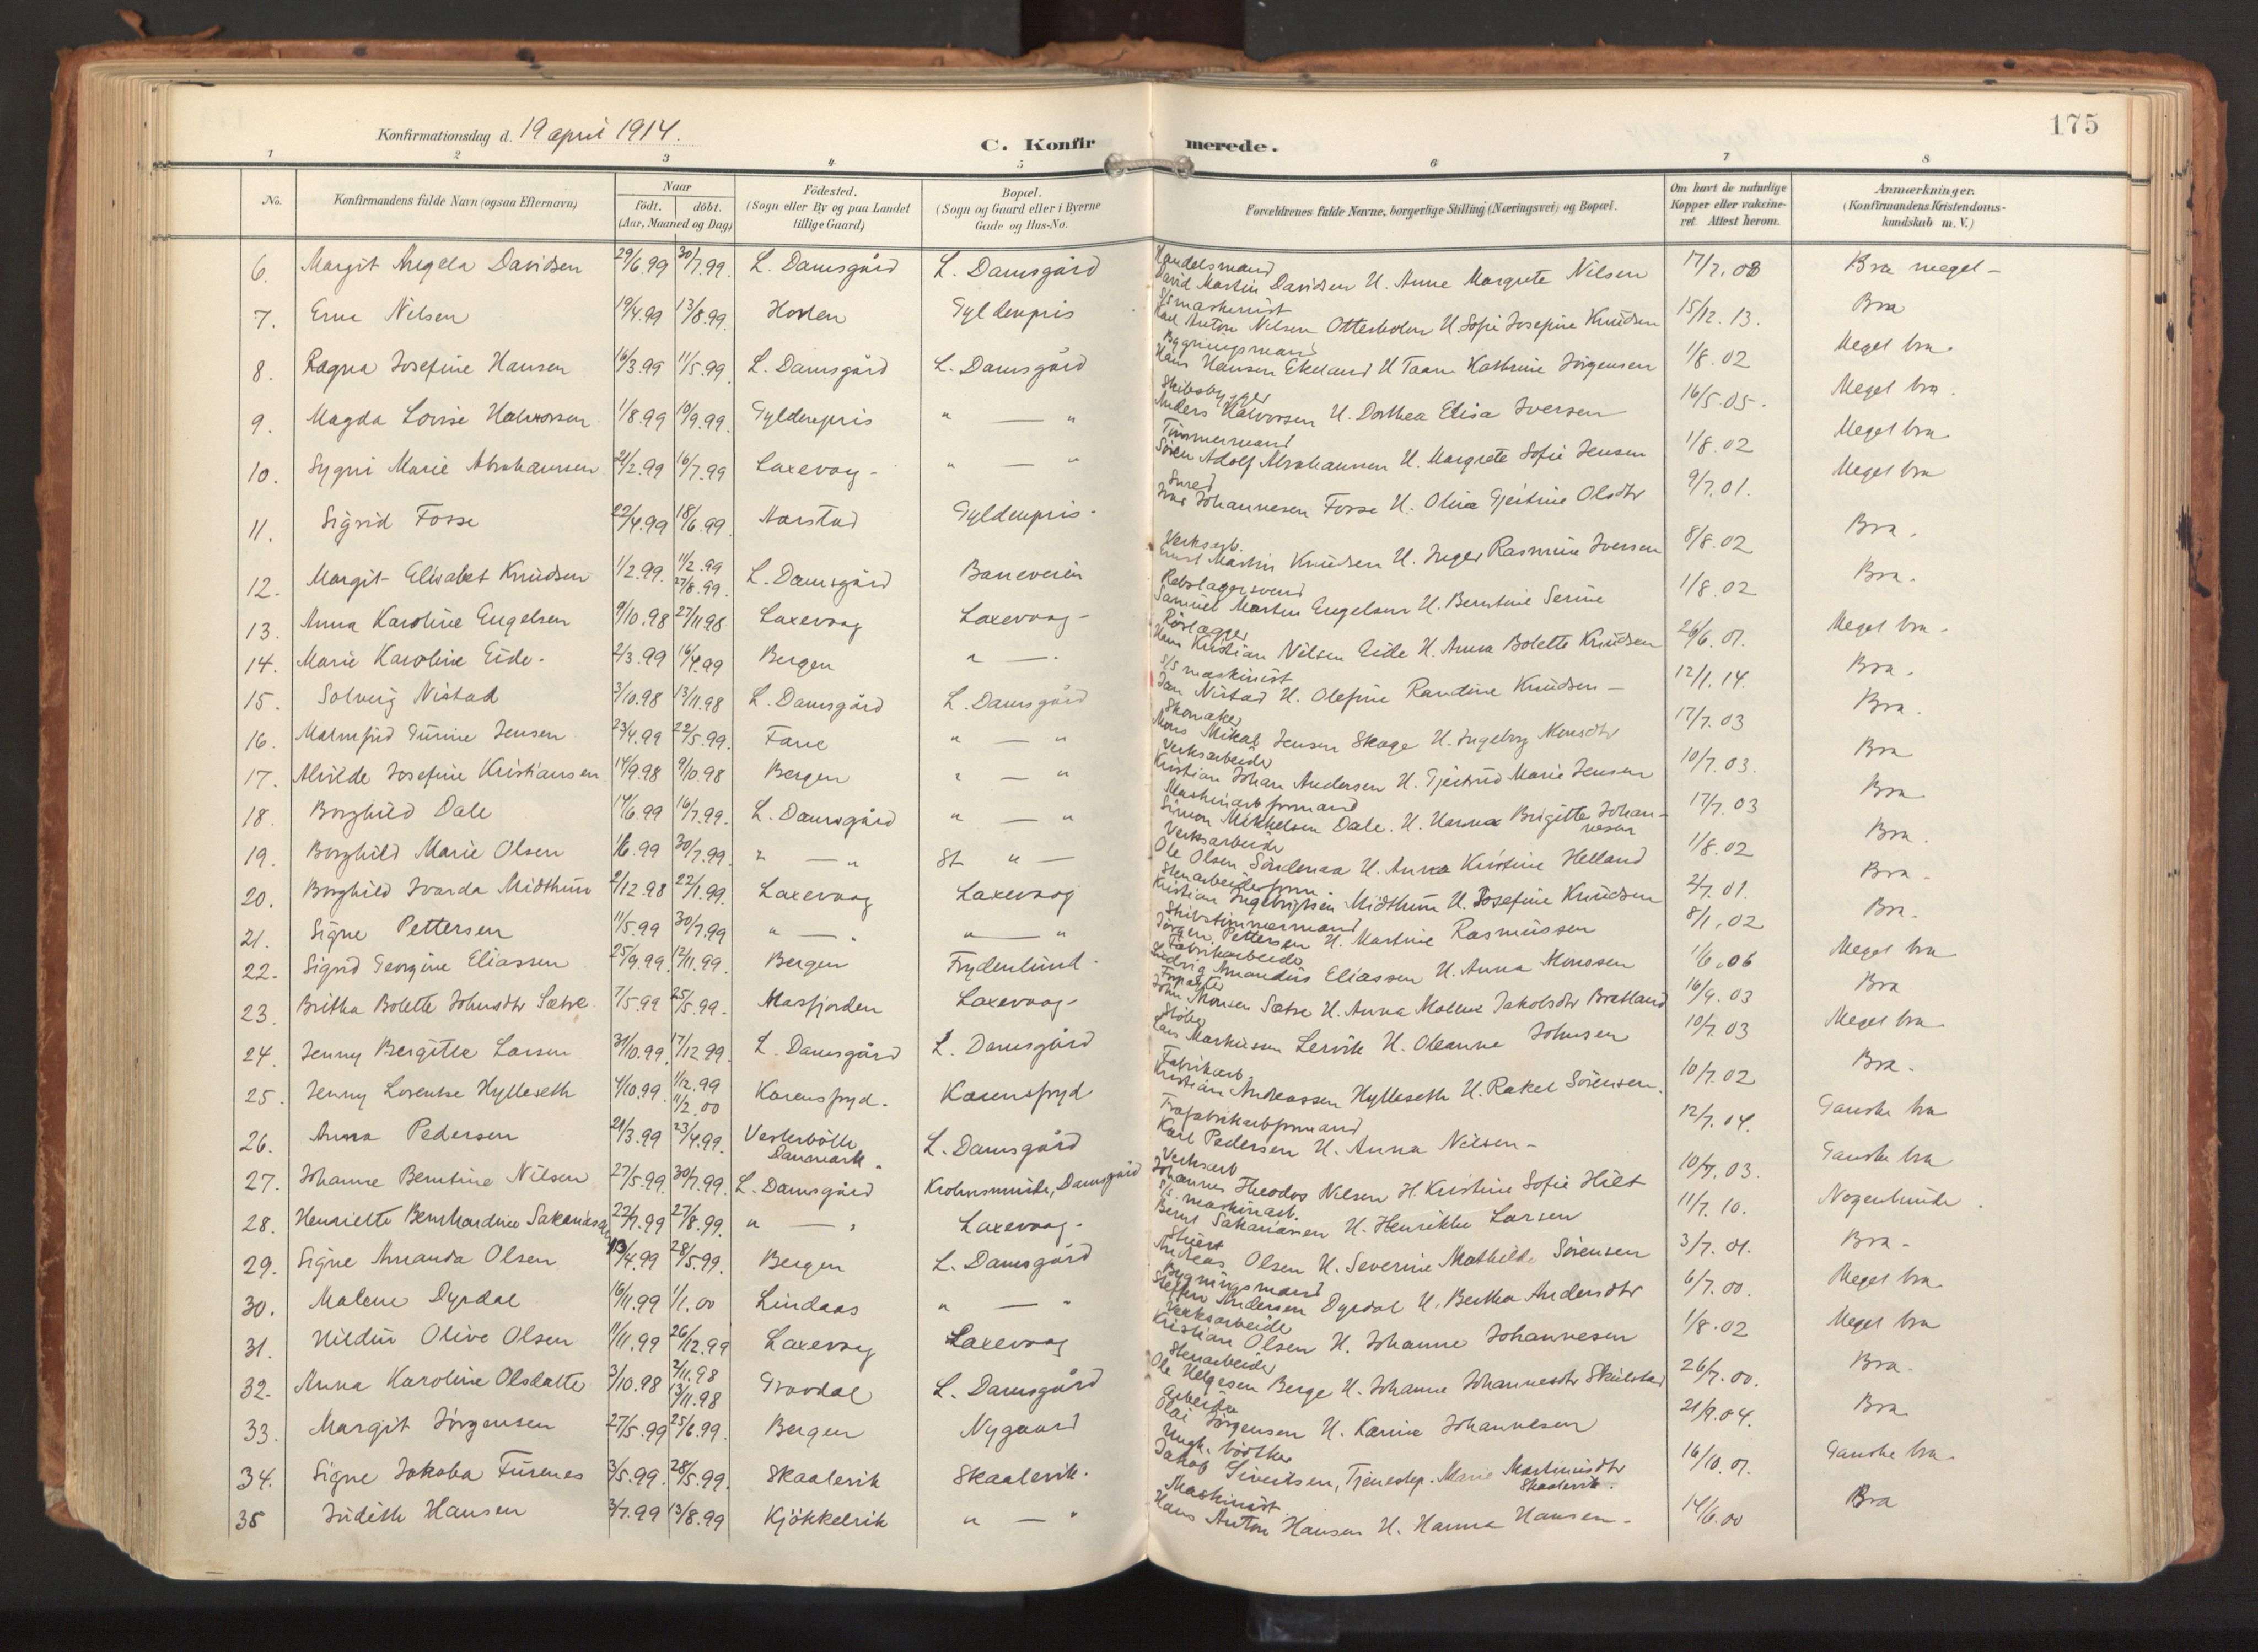 Konfirmationsdag d. 19 april 1914.
C. Konfirmerede.
175
1 2 3 4 5 6 7 8
No.
Konfirmandens fulde Navn (ogsaa Efternavn)
Naar
födt. döbt.
(Aar, Maaned og Dag)
Födested.
(Sogn eller By og paa Landet
tillige Gaard)
Bopæl.
(Sogn og Gaard eller i Byerne
Gade og Hus-No.
Forældrenes fulde Navne, borgerlige Stilling (Næringsvei) og Bopæl.
Om havt de naturlige
Kopper eller vaksine-
ret. Attest herom.
Anmærkninger.
(Konfirmandens Kristendoms-
kundskab m. V.)
6. Margit Angela Davidsen 29/6.99 30/7.99. L. Damsgård L. Damsgård Handelsmand
David Martin Davidsen H. Anne Margrete Nilsen 17/7.08 Bra meget -
7. Erna Nilsen 19/4.99 13/8.99. Horten Gyldenpris S/S maskinist
Karl Anton Nilsen Otterholm H. Sofie Josefine Knudsen 15/12.13. Bra
8. Ragna Josefine Hansen 16/3.99 11/5.99. L. Damsgård L. Damsgård Bygningsmand
Hans Hansen Ekeland H. Kathrine Jörgensen 1/8.02 Meget bra.
9. Magda Lovise Halvorsen 1/8.99 10/9.99. Gyldenpris " — " Skibsbygger
Anders Halvorsen H. Dorthea Elisa Iversen 16/5.05. Meget bra.
10. Sygni Marie Abrahamsen 21/2.99 16/7.99 Laxevaag - " — " Tömmermand
Sören Adolf Abrahamsen H. Margrete Sofie Jensen 1/8.02 Meget bra
11. Sigrid Fosse 22/4.99 18/6.99 Aarstad Gyldenpris.
Ivar Johannesen Fosse H. Olina Gjertine Olsdtr 9/7.01. Meget bra
12. Margit Elisabet Knudsen 1/2.99. 11/2.99
27/8.99. L. Damsgård Baneveien Verksarb.
Ernst Martin Knudsen H. Inger Rasmine Iversen 8/8.02 Bra.
13. Anna Karoline Engelsen 9/10.98 27/11.98 Laxevaag Laxevaag - Rebslagersvend
Samuel Martin Engelsen H. Berntine Serine 1/8.02 Bra.
14. Marie Karoline Eide. 2/3.99 16/4.99 Bergen " — . Rörlægger
Hans Kristian Nilsen Eide H. Anna Bolette Knudsen 26/6.01. Meget bra.
15. Solveig Nistad 3/10.98 13/11.98 L. Damsgård L. Damsgård S/S maskinist
Jan Nistad H. Olefine Randine Knudsen - 12/1.14. Bra.
16. Malmfrid Turine Jensen 23/4.99 22/5.99. Fane " — " Skomaker
Mons Mikal Jensen Skage H. Ingeborg Monsdtr 17/7.03 Bra.
17. Alvilde Josefine Kristiansen 14/9.98 9/10.98 Bergen " — " Verksarbeider
Kristian Johan Andersen H. Gjertrud Marie Jensen 10/7.03. Bra
18. Borghild Dale 14/6.99 16/7.99. L. Damsgård " — " Maskinarb formand
Simon Mikkelsen Dale. H. Hanna Brigitte Johan-
nesen 17/7.03 Bra
19. Borghild Marie Olsen 1/6.99 30/7.99. " — " St " — Verksarbeide
Ole Olsen Söndenaa H. Anna Kristine Helland 1/8.02 Bra.
20. Borghild Ivarda Midthun 2/12.98 22/1.99. Laxevaag Laxevaag Stenarbeiderform.
Kristian Ingebrigtsen Midthun H. Josefine Knudsen 2/7.01. Bra.
21. Signe Pettersen 11/5.99 30/7.99 " — . " — " Skibstimmermand
Jörgen Pettersen H. Martine Rasmussen 8/1.02 Bra.
22. Sigrid Georgine Eliassen 25/9.99. 12/11.99. Bergen Frydenlund. Fabrikarbeide
Ludvig Amandus Eliassen H. Anna Monssen 1/6.06 Meget bra
23. Britha Bolette Johnsdtr Sætre. 7/5.99 25/5.99. Masfjorden Laxevaag -
John Monsen Sætre H. Anna Malene Jakobsdtr Bratland 16/9.03 Bra
24. Jenny Bergitte Larsen 31/10.99. 17/12.99. L. Damsgård L. Damsgård Stöber
Lars Markussen Lervik H. Oleanne Johnsen 10/7.03 Meget bra
25. Jenny Lorentse Hylleseth 4/10.99. 1/12.99
11/2.00 Karensfryd. Karensfryd Fabrikarb.
Kristian Andreassen Hylleseth H. Rakel Sörensen. 10/7.02 Bra.
26. Anna Pedersen 21/3.99 23/4.99. Vesterbölle
Danmark. L. Damsgård Trafabrikarbformand
Karl Pedersen H. Anna Nilsen - 12/7.04. Ganske bra
27. Johanne Berntine Nilsen 27/5.99. 30/7.99. L. Damsgård Krohnsminde, Damsgård Verksarb
Johannes Theodor Nilsen H. Kristine Sofie Hilt 10/7.03. Ganske bra
28. Henriette Bernhardine Sakariassen 22/7.99 27/8.99. " — " Laxevaag. S/S. maskinarb.
Bernt Sakariassen H. Henrikke Larsen 11/7.10. Nogenlunde.
29. Signe Amanda Olsen 13/4.99 28/5.99. Bergen L. Damsgård Stuert
Andreas Olsen H. Severine Mathilde Sörensen 3/7.01. Bra -
30. Malene Dyrdal 16/11.99 1/1.00 Lindaas " — " Bygningsmand
Steffen Andersen Dyrdal H. Bertha Andersdtr 6/7.00. Meget bra
31. Hildur Olive Olsen 11/11.99 26/12.99 Laxevaag Laxevaag Verksarbeide
Kristian Olsen H. Johanne Johannesen 1/8.02 Meget bra
32. Anna Karoline Olsdatter 3/10.98 2/11.98
13/11.98 Gravdal L. Damsgård Stenarbeide
Ole Helgesen Berge H. Johanne Johannesdtr Skulstad 26/7.00. Bra.
33. Margit Jörgensen 27/5.99 25/6.99. Bergen Nygaard Arbeide
Olai Jörgensen H. Karine Johannesen 21/9.04. Bra
34. Signe Jakoba Furenes 3/5.99. 28/5.99. Skaalevik Skaalevik. Ungk. bödtker
Jakob Sivertsen, Tjenestep. Marie Martinusdtr
Skaalevik. 16/10.01. Ganske bra
35 Judith Hansen 3/7.99 13/8.99 Kjökkelvik " — " Maskinist
Hans Anton Hansen H. Hanna Hansen - 14/6.00 Bra